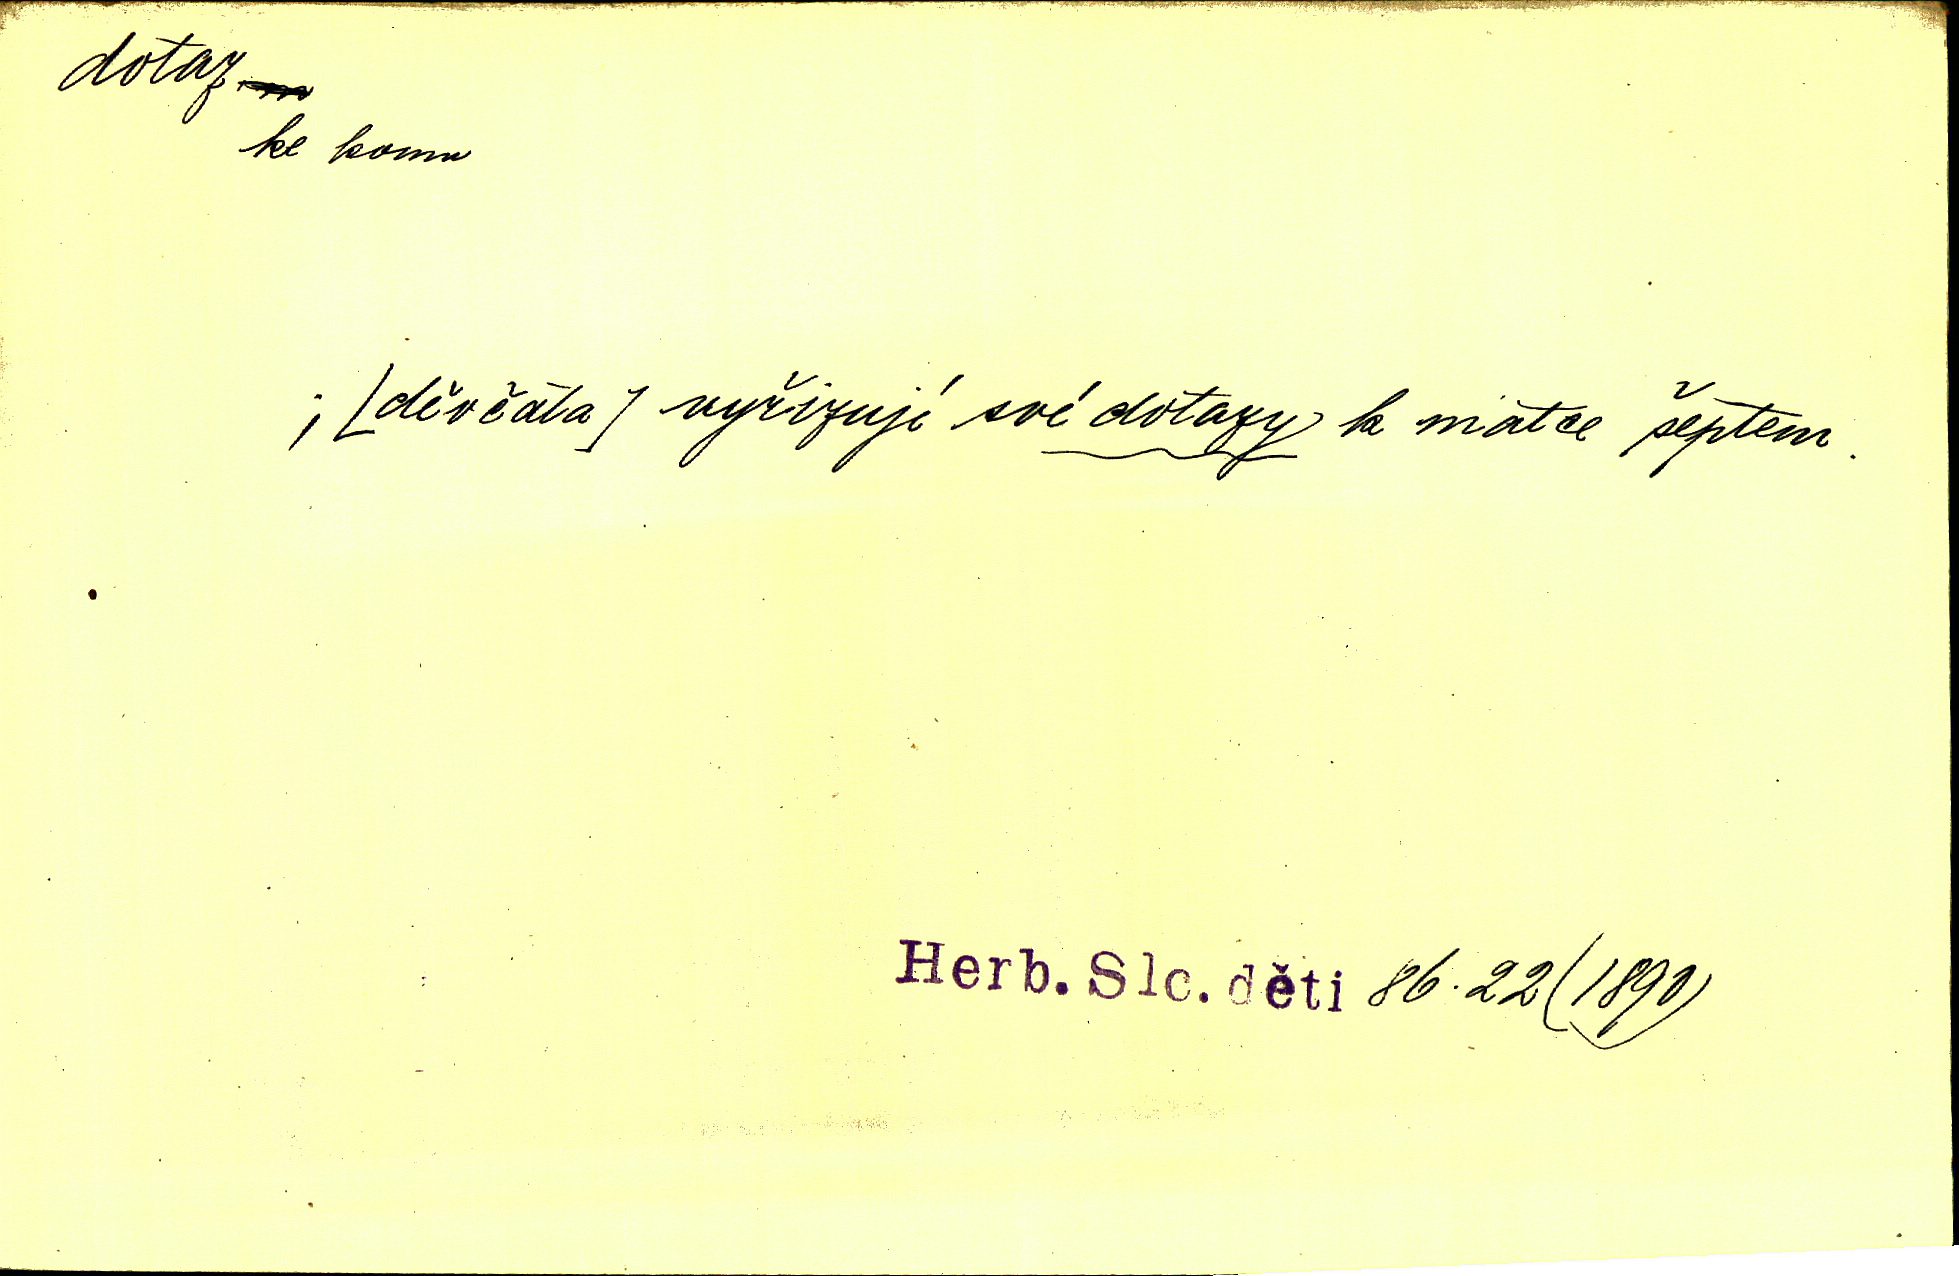 dotaz
ke komu
; [děvčata] vyřizují své dotazy k matce šeptem.
Herb. Slc. děti 86.22 (1890)